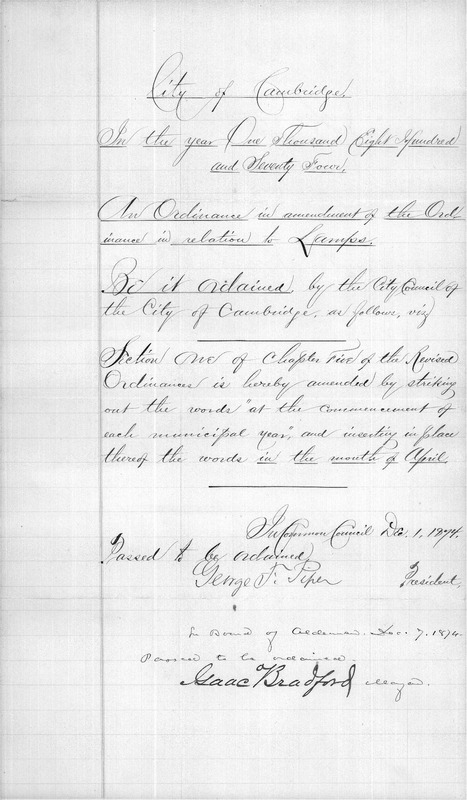 City of Cambridge.
In the year One Thousand Eight Hundred
and Seventy Four.
An Ordinance in amendment of the Ord-
inance in relation to Lamps.
Be it ordained by the City Council of
the City of Cambridge, as follows, viz
Section One of Chapter Five of the Revised
Ordinances is hereby amended by striking
out the words "at the commencement of
each municipal year", and inserting in place
thereof the words in the month of April.
In Common Council Dec. 1, 1874.
Passed to be ordained
George F. Piper President,
In Board of Aldermen. Dec. 7. 1874
Passed to be ordained.
Isaac Bradford Mayor.